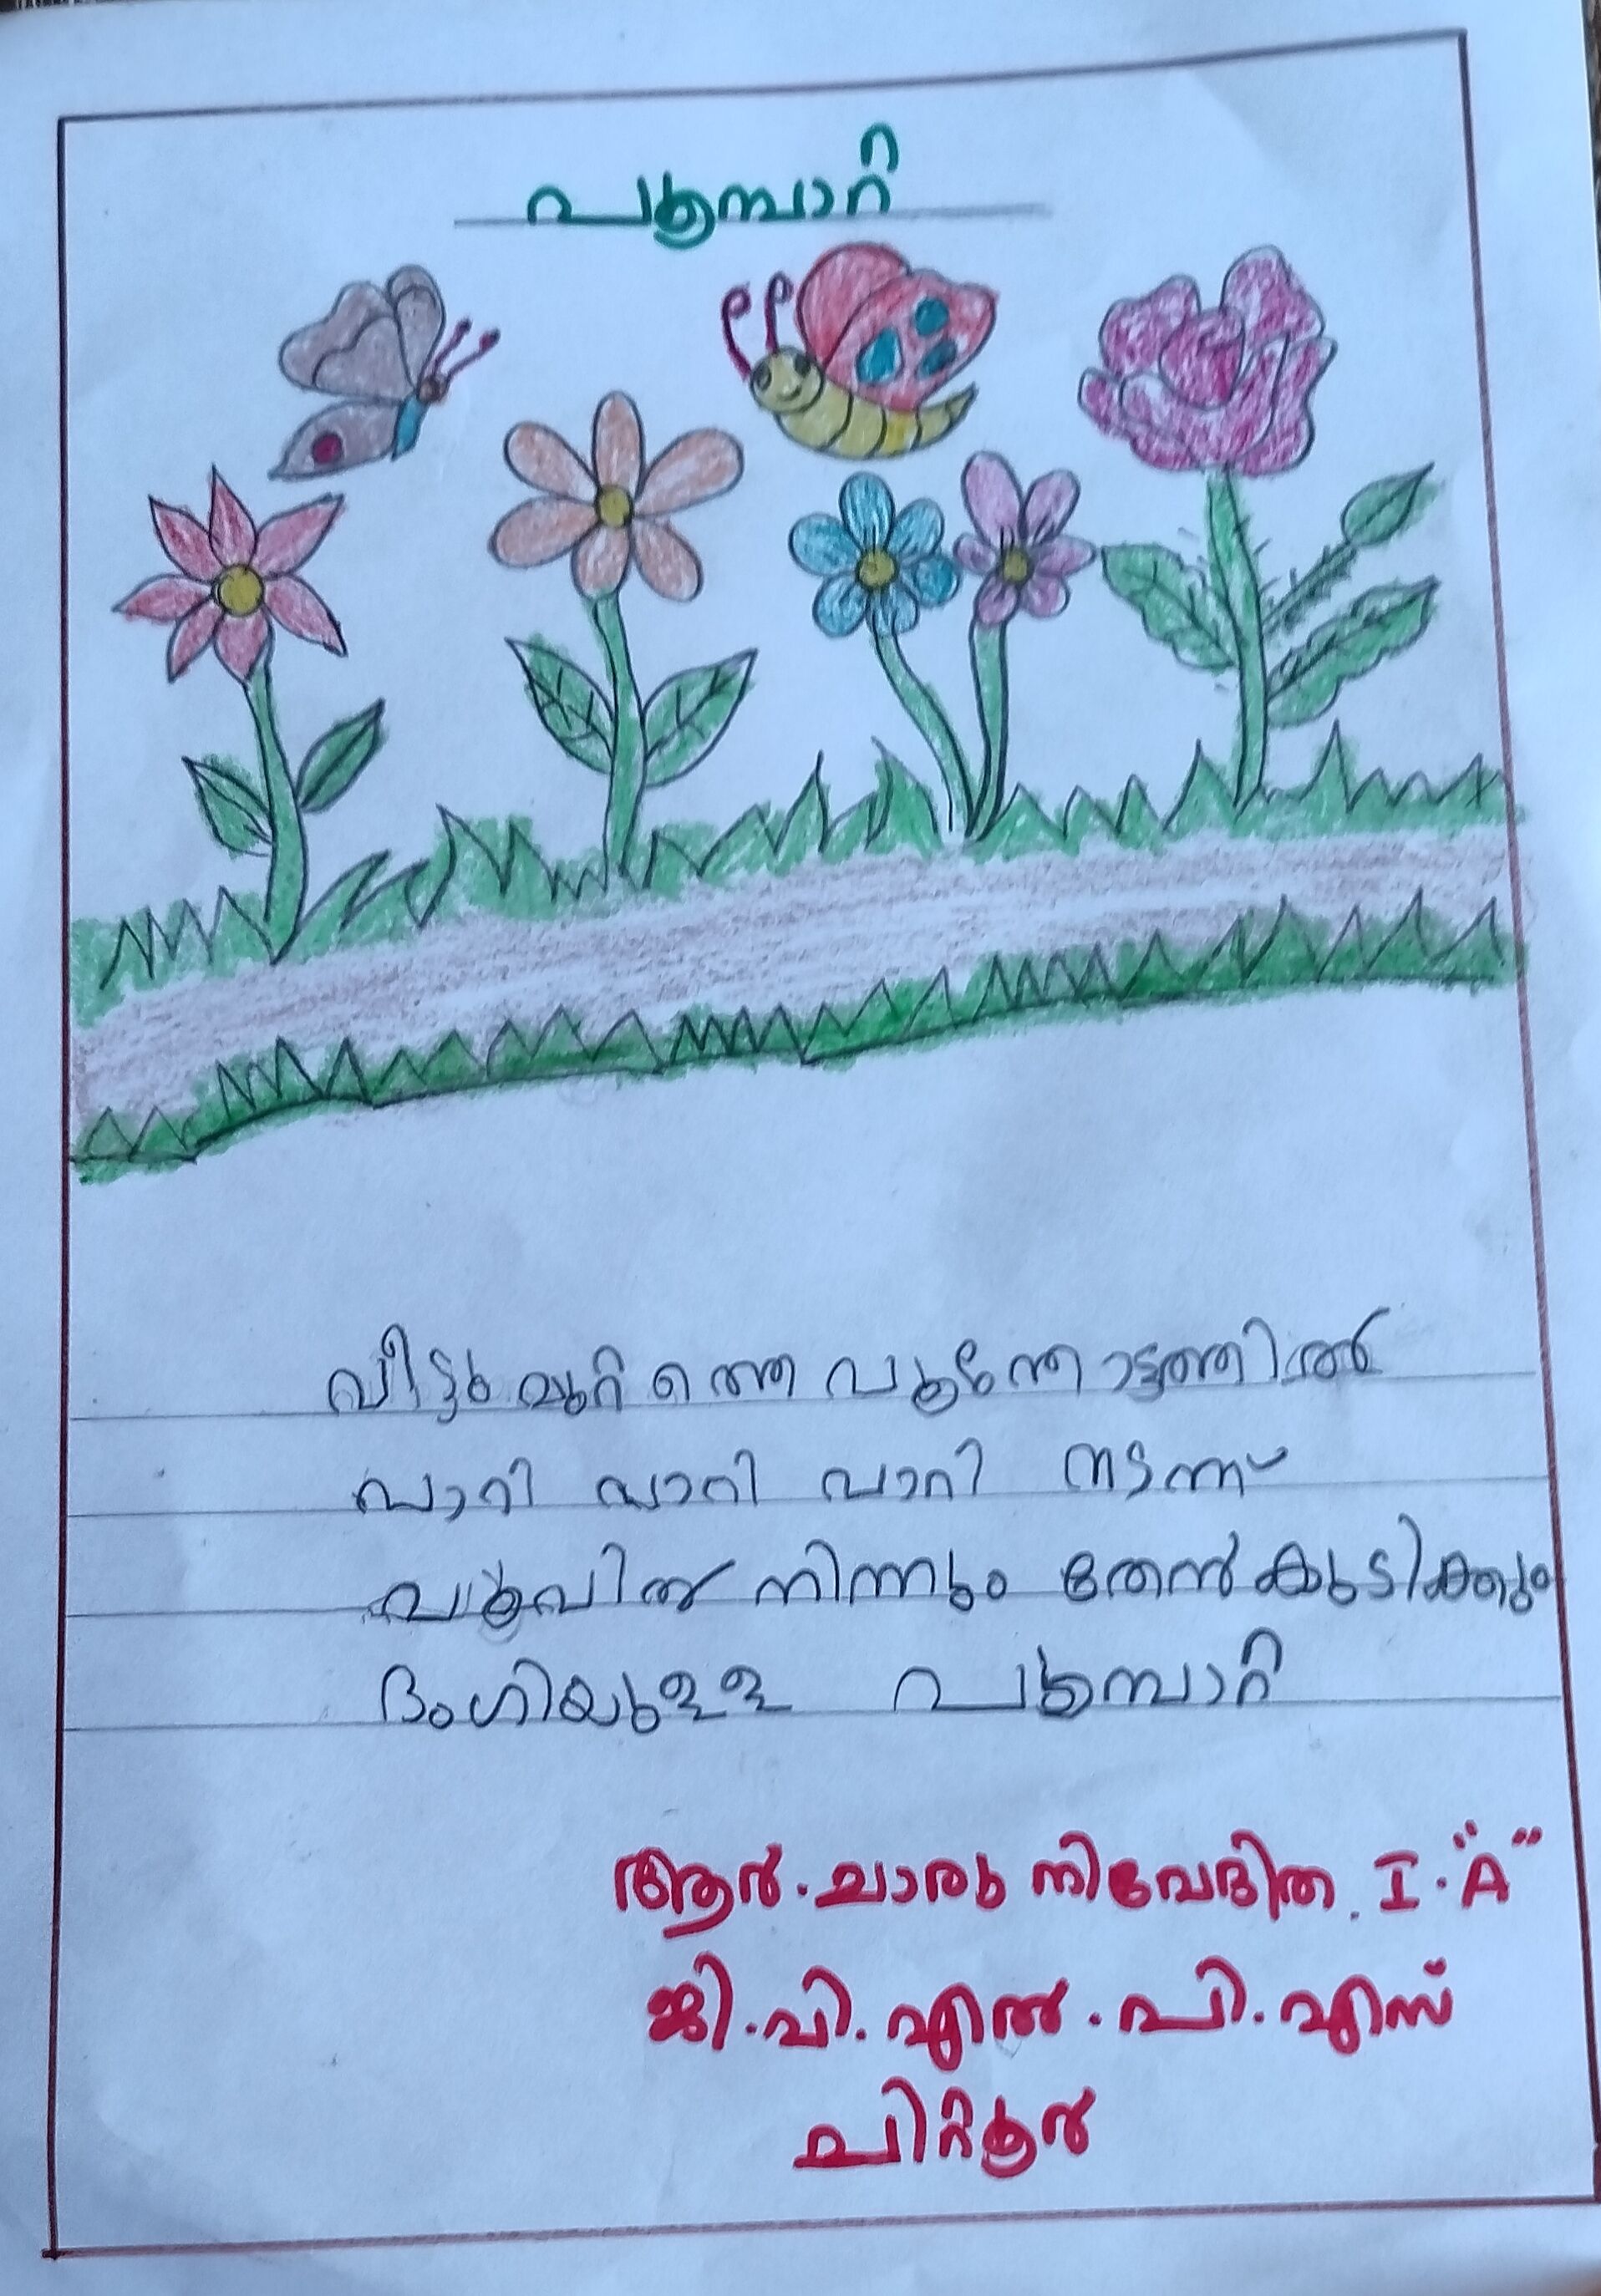 പൂമ്പാറ്റ
വീട്ടുമുറ്റത്തെ പൂന്തോട്ടത്തിൽ
പാറി പാറി പാറി നടന്ന്
പൂവിൽ നിന്നും തേൻ കുടിക്കും
ഭംഗിയുള്ള പൂമ്പാറ്റ
ആർ. ചാരു നിവേദിത. I. "A"
ജി. വി. എൽ. പി. എസ്
ചിറ്റൂർ